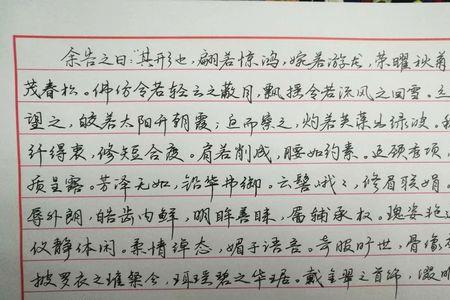 余告之曰:“其形也,翩若惊鸿,婉若游龙,荣曜秋菊
茂春松。仿佛兮若轻云之蔽月,飘摇兮若流风之回雪。
望之,皎若太阳升朝霞;迫而察之,灼若芙蕖出渌波。
纤得衷,修短合度。肩若削成,腰如约素。延颈秀项,
质呈露。芳泽无加,铅华弗御。云髻峨峨,修眉联娟。
唇外朗,皓齿内鲜,明眸善睐,靥辅承权。瑰姿艳逸
仪静体闲。柔情绰态,媚于语言。奇服旷世,骨像
披罗衣之璀粲兮,珥瑶碧之华琚。戴金翠之首饰,缀明